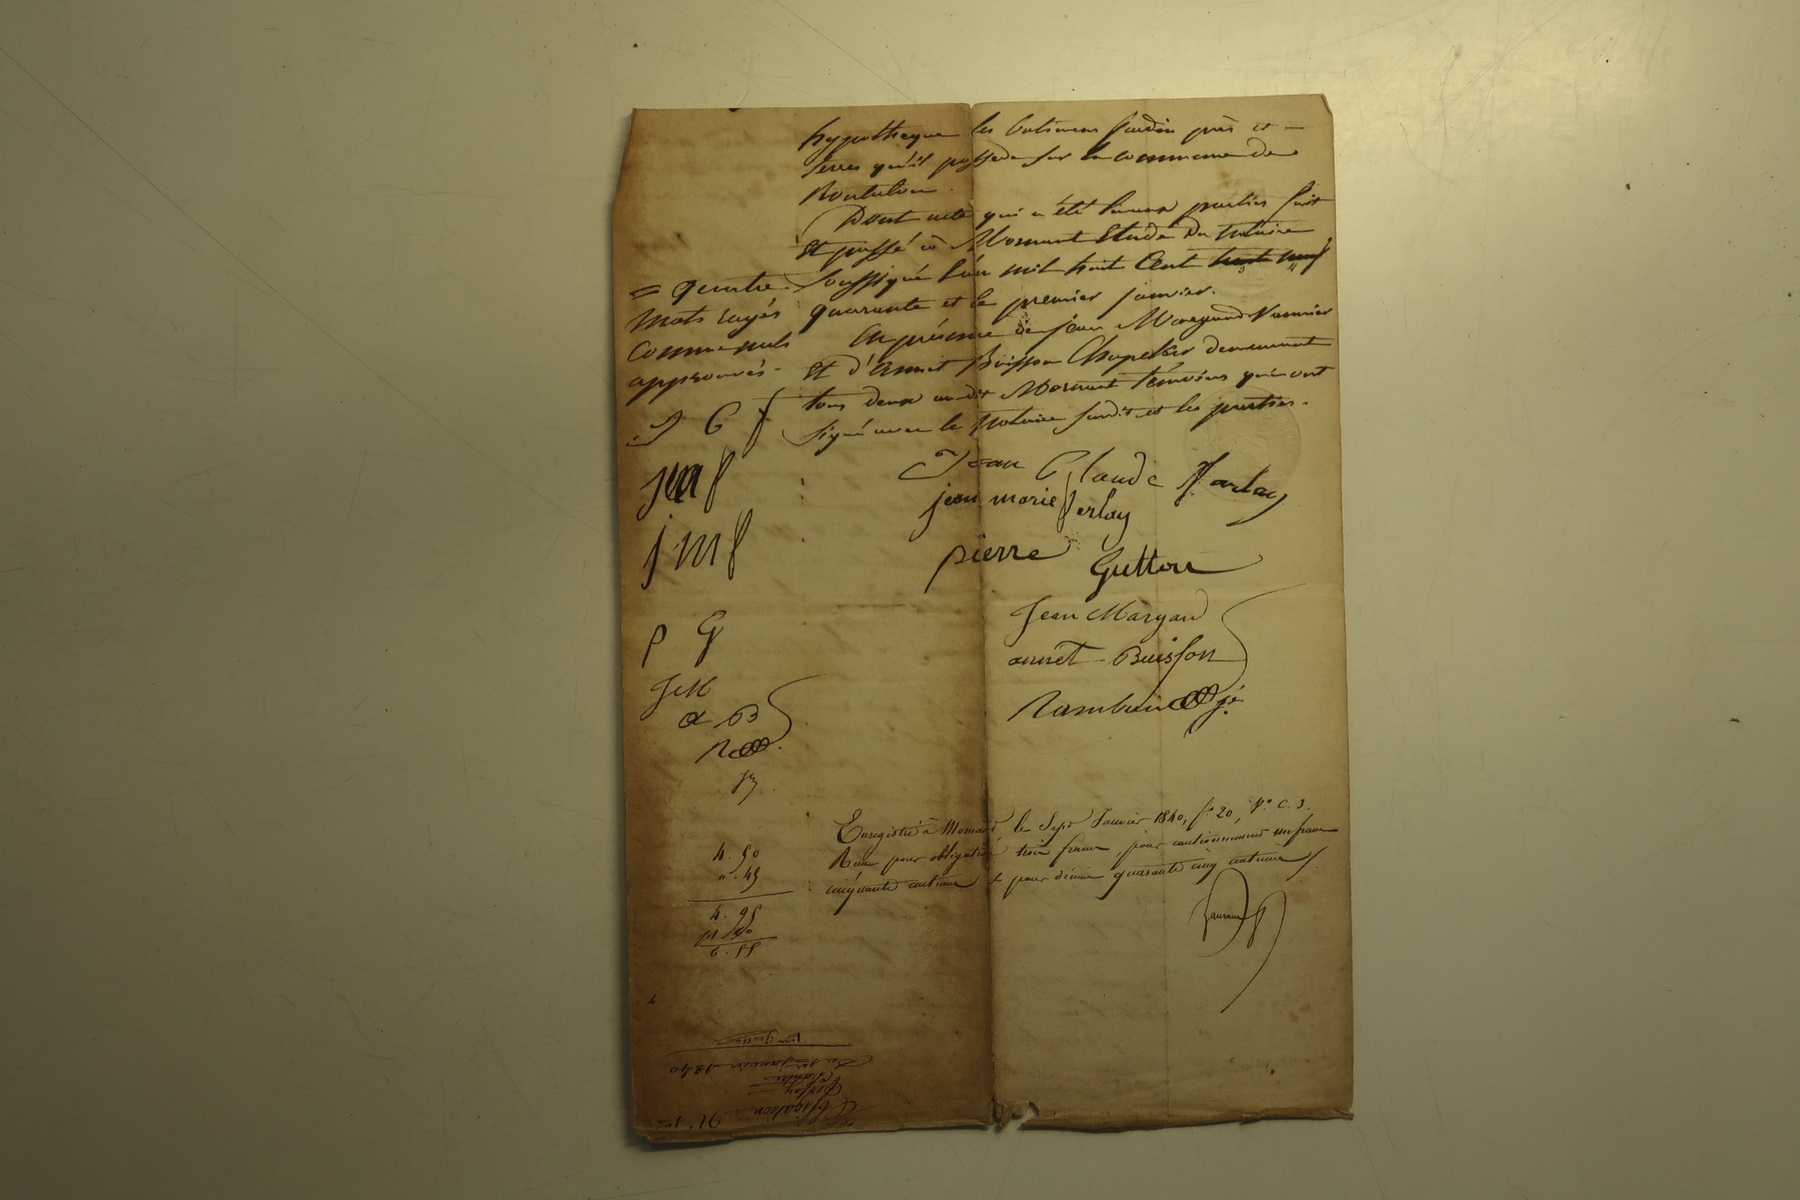 hypotheque les batimens jardin près et
terres qu'il possede sur la commune de
Rontalon.
Dont acte qui a été lu aux parties fait
et passé à Mornant Etude du notaire
soussigné l'an mil huit cent trente neuf
quarante et le premier janvier.
En présence de jean Margand Vannier
et d'Annet Buisson Chapelier demeurant
tous deux audit Mornant témoins qui ont
signé avec le Notaire susdit et les parties.
= quatre
mots rayés
comme nuls
approuvés.
J C f
jmf
jmf
p G
J M
a B
Jean Claude
jean marie ferlay
pierre Gutton
Jean Margand
annet Buisson
Enregistré à Mornant, le Sept Janvier 1840, f° 20, V° C. 3.
Reçu pour obligation trois francs, pour cautionnement un franc
cinquante centimes et pour décime quarante cinq centimes
4. 50
" 45
4. 95
6. 55
N° 1er
Obligation
ferlay
Du 1er janvier 1840